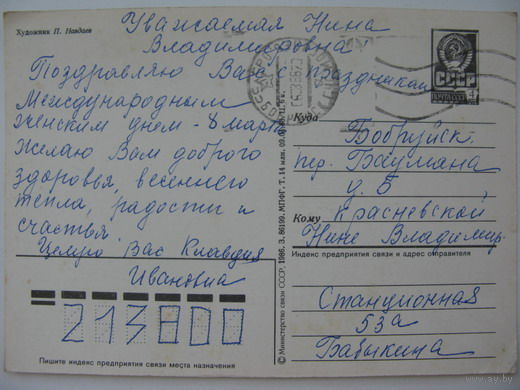 Художник П. Наядаев
Уважаемая Нина
Владимировна!
Поздравляю Вас с праздником
Международным
женским днем - 8 марта
Желаю Вам доброго
здоровья, весеннего
тепла, радости и
счастья.
Целую Вас Клавдия
Ивановна
213800
Пишите индекс предприятия связи места назначения
© Министерство связи СССР, 1986. З. 86199. МПФГ. Т. 14 млн.
СССР
Куда
Бобруйск.
пер. Баумана
д. 5
Кому
Красневской
Нине Владимир.
Индекс предприятия связи и адрес отправителя
Станционная
53а
Бабыкина
www.ay.by